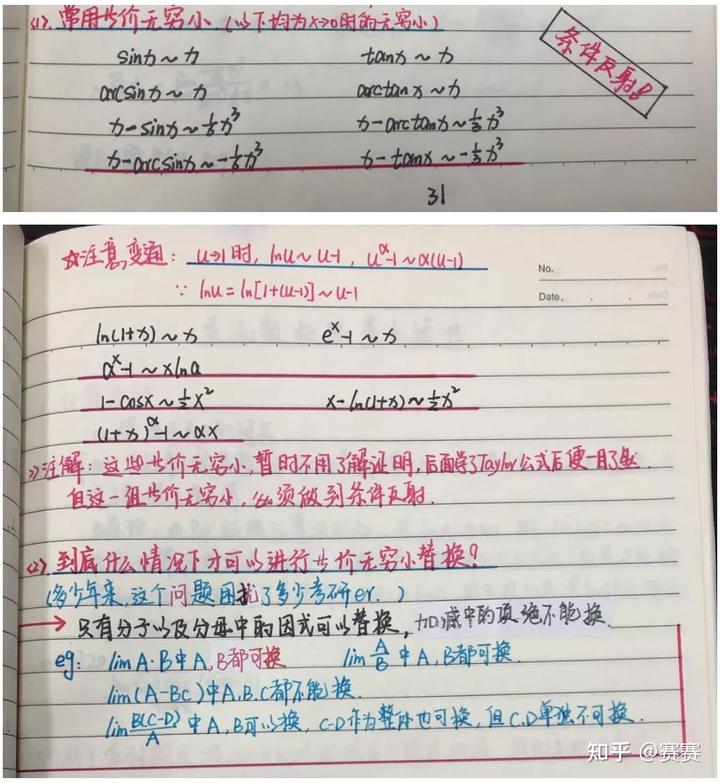 (1). 常用等价无穷小.(以下均为x→0时的无穷小)
条件反射!
sinx~x tanx~x
arcsinx~x arctanx~x
x-sinx~1/6x³ x-arctanx~1/3x³
x-arcsinx~-1/6x³ x-tanx~-1/3x³
31
☆注意变通: u→1时, lnu~u-1, u^α-1~α(u-1)
∵ lnu=ln[1+(u-1)]~u-1
No.
Date. . .
ln(1+x)~x e^x-1~x
a^x-1~xlna
1-cosx~1/2x² x-ln(1+x)~1/2x²
(1+x)^α-1~αx
>>注解: 这些等价无穷小, 暂时不用了解证明, 后面学了Taylor公式后便一目了然.
但这一组等价无穷小, 必须做到条件反射.
(2) 到底什么情况下才可以进行等价无穷小替换?
(多少年来, 这个问题困扰了多少考研er.)
→ 只有分子以及分母中的因式可以替换, 加减中的项绝不能换.
eg: lim A·B中A,B都可换 lim A/B 中A,B都可换.
lim(A-BC)中A.B.C都不能换.
lim B(C-D)/A 中A,B可以换, C-D作为整体也可换, 但C,D单独不可换.
知乎 @赛赛